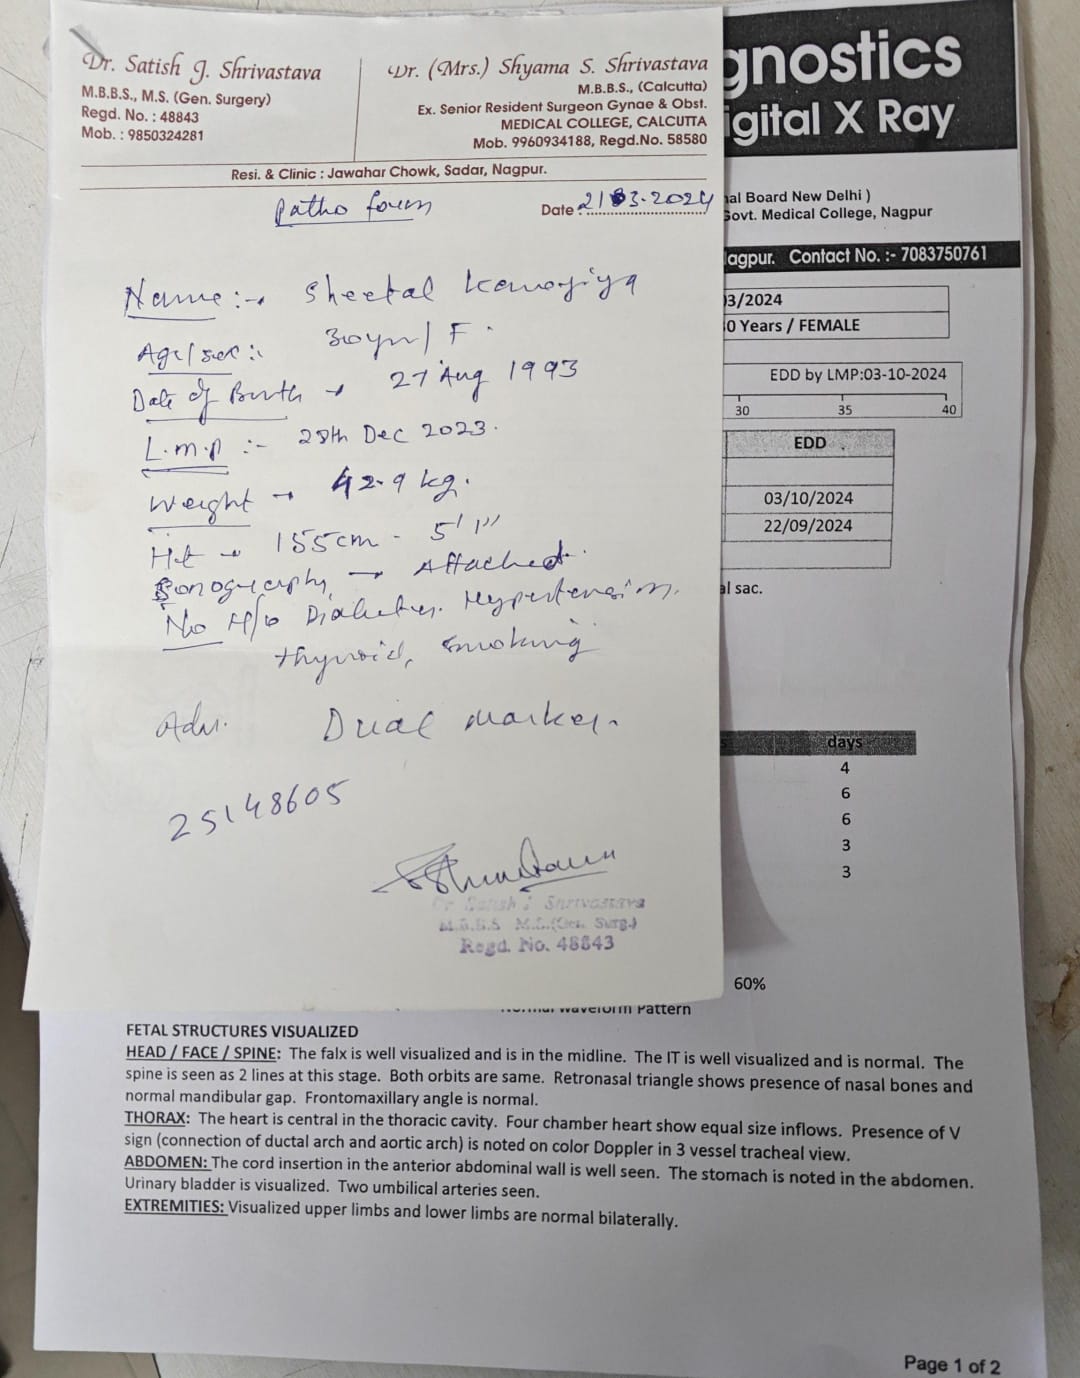 Dr. Satish J. Shrivastava
M.B.B.S., M.S. (Gen. Surgery)
Regd. No. : 48843
Mob. : 9850324281
Dr. (Mrs.) Shyama S. Shrivastava
M.B.B.S., (Calcutta)
Ex. Senior Resident Surgeon Gynae & Obst.
MEDICAL COLLEGE, CALCUTTA
Mob. 9960934188, Regd.No. 58580
Resi. & Clinic : Jawahar Chowk, Sadar, Nagpur.
Patho form
Date 21 03-2024
Name :→ Sheetal
Age/sex :: 30yrs/ F
Date of Birth → 27 Aug 1993
L.m.p :- 28th Dec 2023.
Weight → 42.9 kg.
Ht → 155cm - 5'1"
Sonography → Attached.
No H/o Diabetes. Hypertension,
thyroid, smoking
Adv. Dual marker.
25148605
Dr Satish J Shrivastava
M.B.B.S M.S.(Gen. Surg.)
Regd. No. 48843
gnostics
igital X Ray
nal Board New Delhi )
Govt. Medical College, Nagpur
agpur. Contact No. :- 7083750761
03/2024
0 Years / FEMALE
EDD by LMP:03-10-2024
30 35 40
EDD
03/10/2024
22/09/2024
al sac.
days
4
6
6
3
3
60%
Normal Waveform Pattern
FETAL STRUCTURES VISUALIZED
HEAD / FACE / SPINE: The falx is well visualized and is in the midline. The IT is well visualized and is normal. The
spine is seen as 2 lines at this stage. Both orbits are same. Retronasal triangle shows presence of nasal bones and
normal mandibular gap. Frontomaxillary angle is normal.
THORAX: The heart is central in the thoracic cavity. Four chamber heart show equal size inflows. Presence of V
sign (connection of ductal arch and aortic arch) is noted on color Doppler in 3 vessel tracheal view.
ABDOMEN: The cord insertion in the anterior abdominal wall is well seen. The stomach is noted in the abdomen.
Urinary bladder is visualized. Two umbilical arteries seen.
EXTREMITIES: Visualized upper limbs and lower limbs are normal bilaterally.
Page 1 of 2